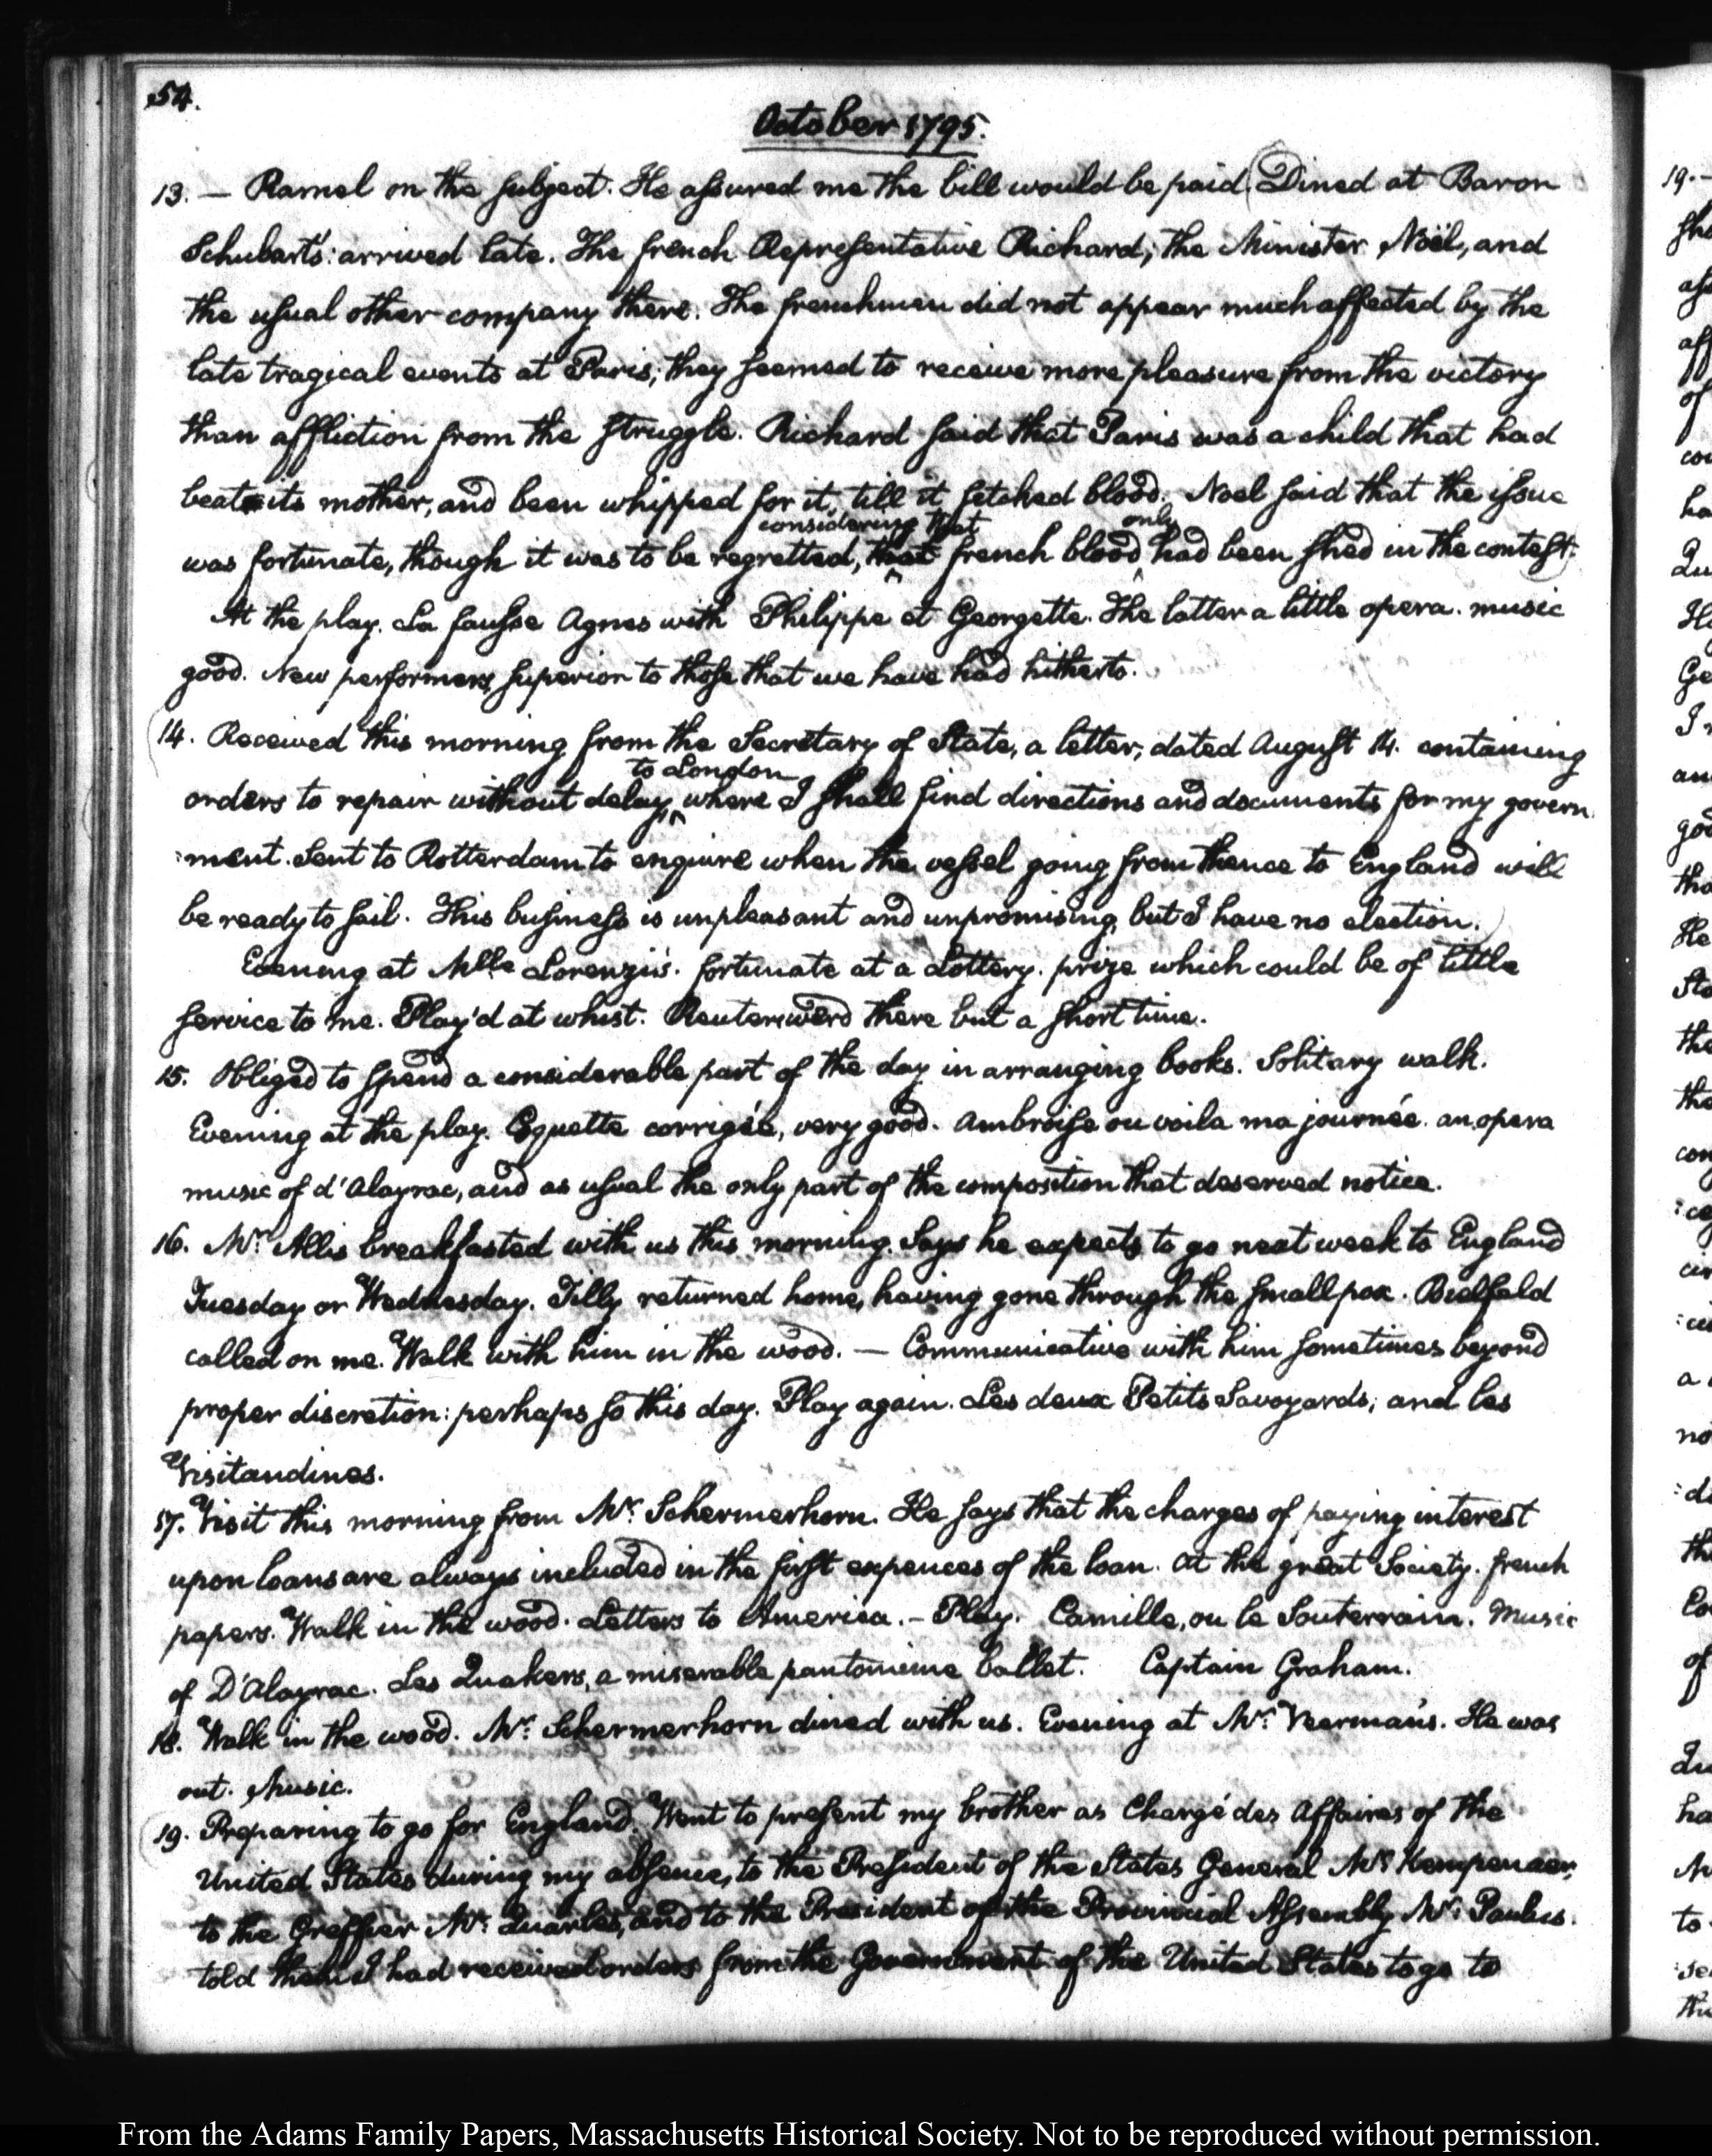 54.
October 1795.
13. — Ramel on the subject. He assured me the bill would be paid. (Dined at Baron
Schubart's: arrived late. The french Representative Richard, the Minister Noël, and
the usual other company there. The frenchmen did not appear much affected by the
late tragical events at Paris; they seemed to receive more pleasure from the victory
than affliction from the struggle. Richard said that Paris was a child that had
beat its mother, and been whipped for it, till it fetched blood. Noel said that the issue
considering that only
was fortunate, though it was to be regretted, that french blood, had been shed in the contest.)
At the play. La fausse Agnes with Philippe et Georgette. The latter a little opera. music
good. New performers, superior to those that we have had hitherto.
(14. Received this morning from the Secretary of State, a letter, dated August 14. containing
to London
orders to repair without delay, where I shall find directions and documents for my govern
:ment. Sent to Rotterdam to enquire when the vessel going from thence to England will
be ready to sail. This business is unpleasant and unpromising, but I have no election.)
Evening at Mlle Lorenzi's. fortunate at a Lottery. prize which could be of little
service to me. Play'd at whist. Reuterswerd there but a short time.
15. Obliged to spend a considerable part of the day in arranging books. Solitary walk.
Evening at the play. Coquette corrigée, very good. Ambroise ou voila ma journée. an opera
music of d'Alayrac, and as usual the only part of the composition that deserved notice.
16. Mr. Allis breakfasted with us this morning. Says he expects to go next week to England
Tuesday or Wednesday. Tilly returned home, having gone through the small pox. Bielfeld
called on me. Walk with him in the wood. — Communicative with him sometimes beyond
proper discretion: perhaps so this day. Play again. Les deux Petits Savoyards, and les
Visitandines.
17. Visit this morning from Mr. Schermerhorn. He says that the charges of paying interest
upon loans are always included in the first expences of the loan. At the great Society. french
papers. Walk in the wood. Letters to America. — Play. Camille, ou le Souterrain. Music
of D'Alayrac. Les Quakers, a miserable pantomime ballet. Captain Graham.
18. Walk in the wood. Mr. Schermerhorn dined with us. Evening at Mr. Veerman's. He was
out. Music.
(19. Preparing to go for England. Went to present my brother as Chargé des Affaires of the
United States during my absence, to the President of the States General Mr. Kempenaer,
to the Greffier Mr. Quarles, and to the President of the Provincial Assembly Mr. Paulus.
told them I had received orders from the Government of the United States to go to
From the Adams Family Papers, Massachusetts Historical Society. Not to be reproduced without permission.